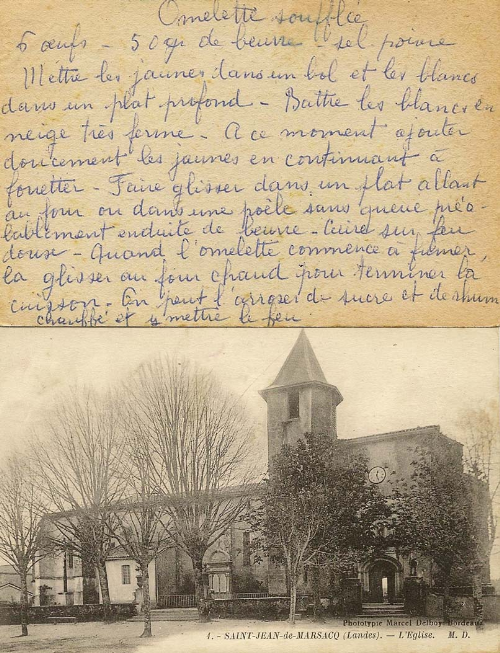 Omelette soufflée
6 œufs - 50 gr de beurre - sel poivre
Mettre les jaunes dans un bol et les blancs
dans un plat profond - Battre les blancs en
neige très ferme - A ce moment ajouter
doucement les jaunes en continuant à
fouetter - Faire glisser dans un plat allant
au four ou dans une poêle sans queue préa-
lablement enduite de beurre - Cuire sur feu
doux - Quand l'omelette commence à fumer,
la glisser au four chaud pour terminer la
cuisson - On peut l'arroser de sucre et de rhum
chauffé et y mettre le feu
Phototypie Marcel Delboy, Bordeaux
4. - SAINT-JEAN-de-MARSACQ (Landes). - L'Eglise. M. D.